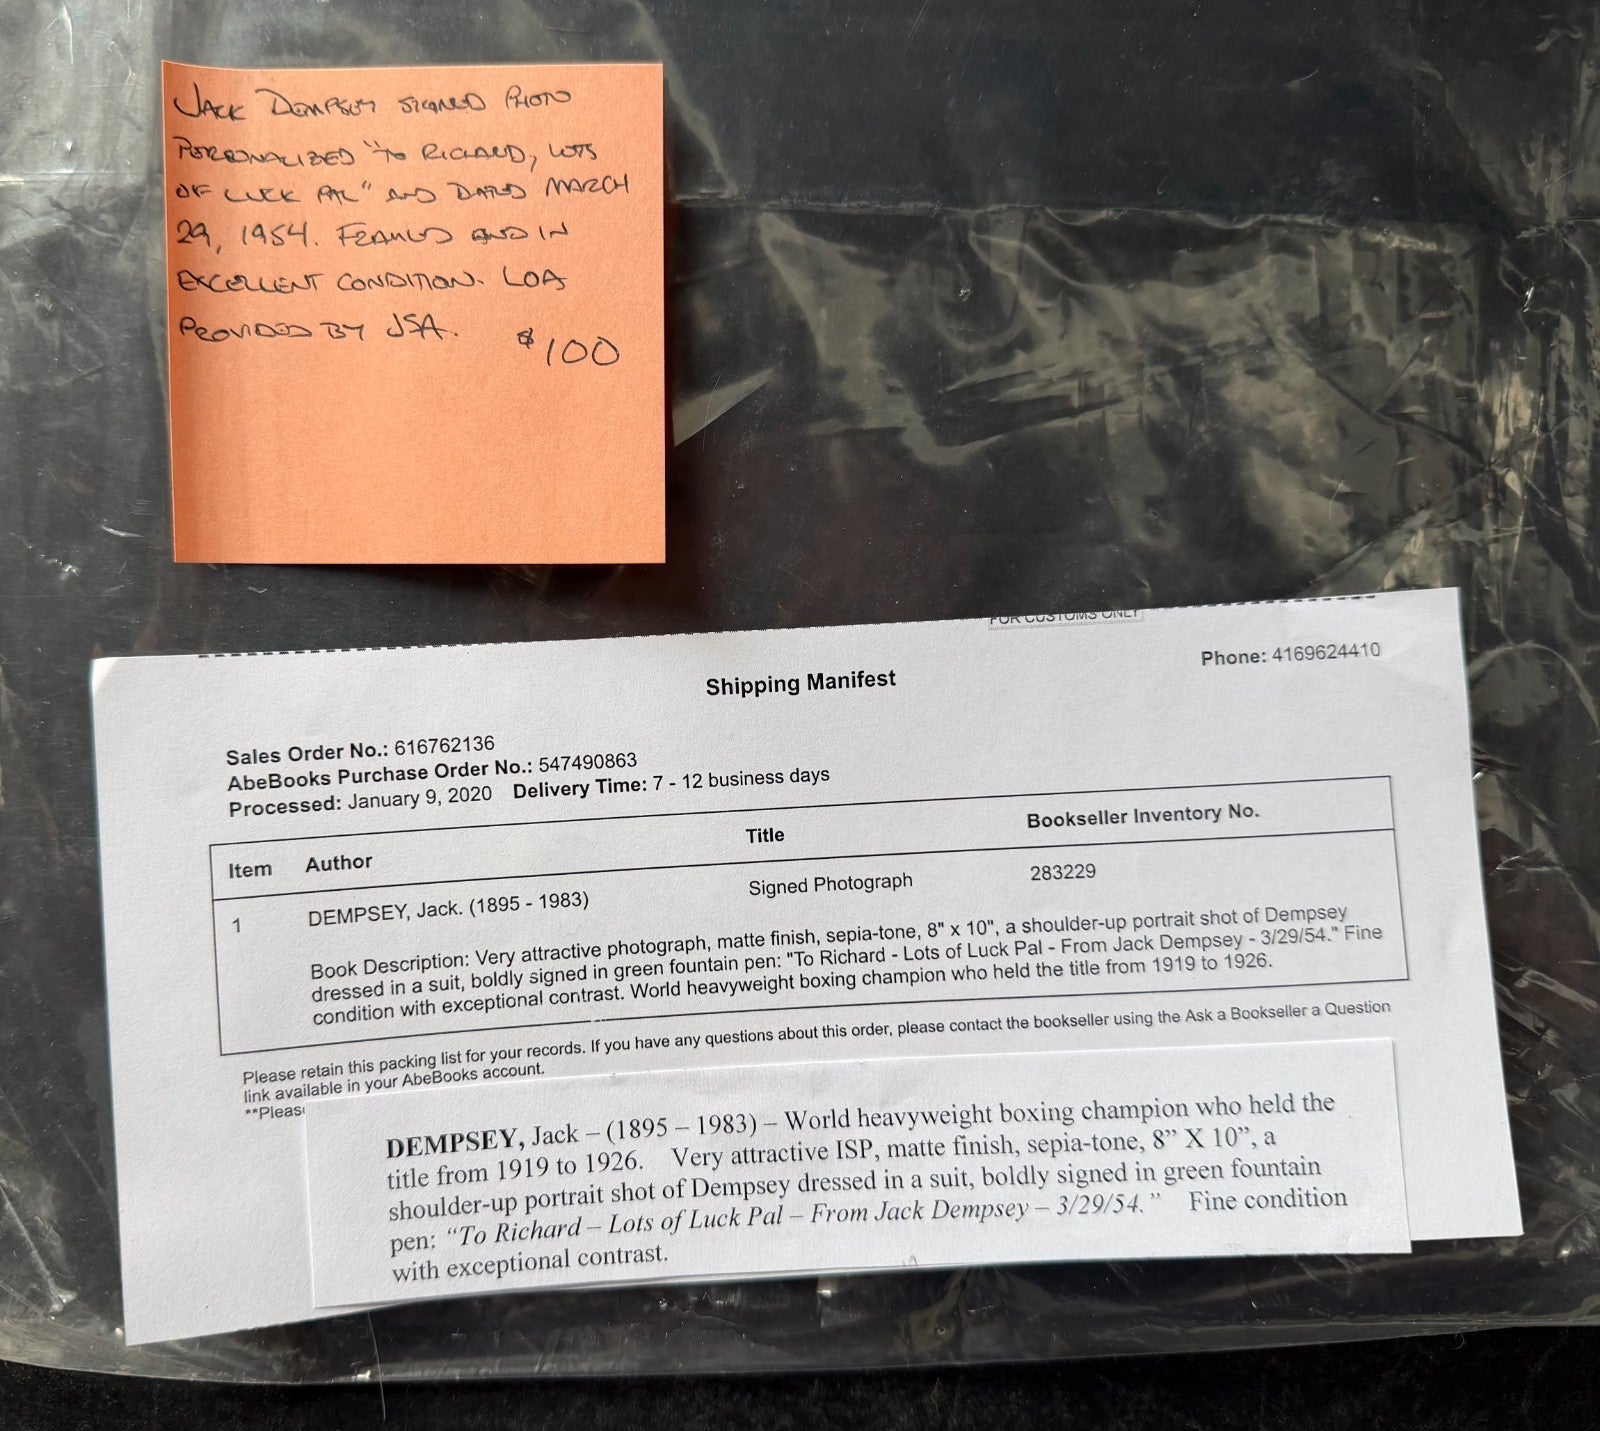 JACK DEMPSEY SIGNED PHOTO
PERSONALIZED "TO RICHARD, LOTS
OF LUCK PAL" AND DATED MARCH
29, 1954. FRAMED AND IN
EXCELLENT CONDITION. LOA
PROVIDED BY JSA. $100
FOR CUSTOMS ONLY
Phone: 4169624410
Shipping Manifest
Sales Order No.: 616762136
AbeBooks Purchase Order No.: 547490863
Processed: January 9, 2020 Delivery Time: 7 - 12 business days
Item Author Title Bookseller Inventory No.
1 DEMPSEY, Jack. (1895 - 1983) Signed Photograph 283229
Book Description: Very attractive photograph, matte finish, sepia-tone, 8" x 10", a shoulder-up portrait shot of Dempsey
dressed in a suit, boldly signed in green fountain pen: "To Richard - Lots of Luck Pal - From Jack Dempsey - 3/29/54." Fine
condition with exceptional contrast. World heavyweight boxing champion who held the title from 1919 to 1926.
Please retain this packing list for your records. If you have any questions about this order, please contact the bookseller using the Ask a Bookseller a Question
link available in your AbeBooks account.
**Pleas
DEMPSEY, Jack – (1895 – 1983) – World heavyweight boxing champion who held the
title from 1919 to 1926. Very attractive ISP, matte finish, sepia-tone, 8” X 10”, a
shoulder-up portrait shot of Dempsey dressed in a suit, boldly signed in green fountain
pen: “To Richard – Lots of Luck Pal – From Jack Dempsey – 3/29/54.” Fine condition
with exceptional contrast.